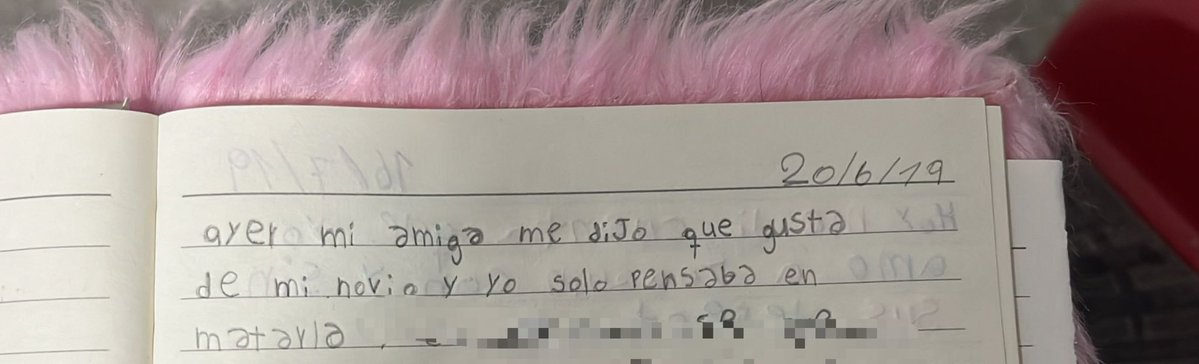 20/6/19
ayer mi amiga me dijo que gusta
de mi novio y yo solo pensaba en
matarla.